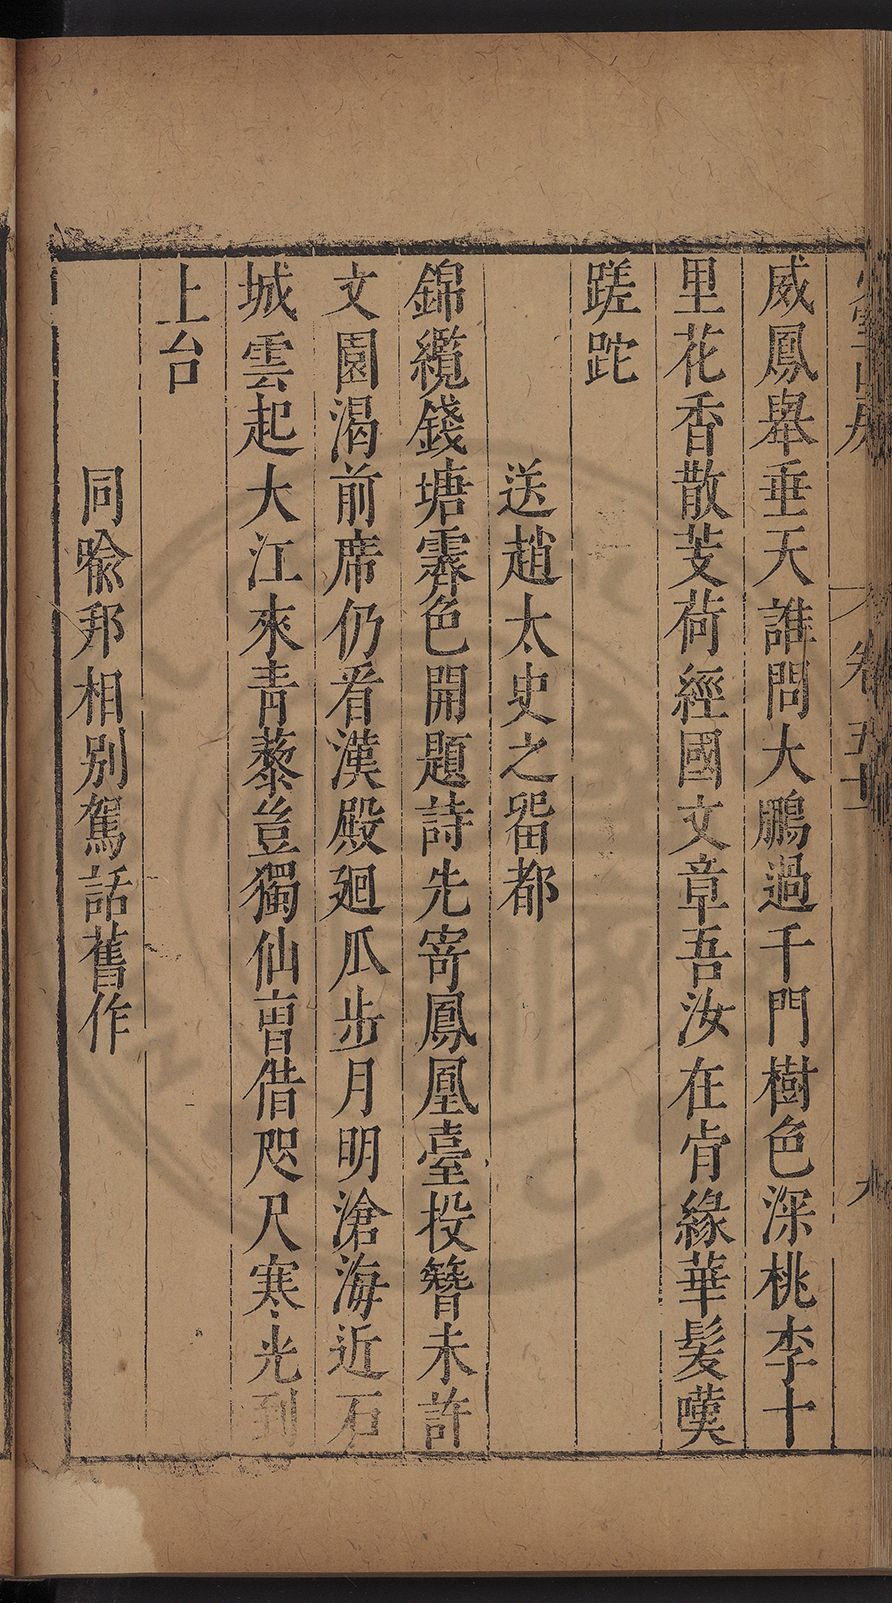 卷五十
九
威鳳舉垂天誰問大鵬過千門樹色深桃李十
里花香散芰荷經國文章吾汝在肯緣華髮嘆
蹉跎
送趙太史之畱都
錦纜錢塘霽色開題詩先寄鳳凰臺投簪未許
文園渴前席仍看漢殿迴瓜步月明滄海近石
城雲起大江來青藜豈獨仙曹借咫尺寒光到
上台
同喻邦相別駕話舊作